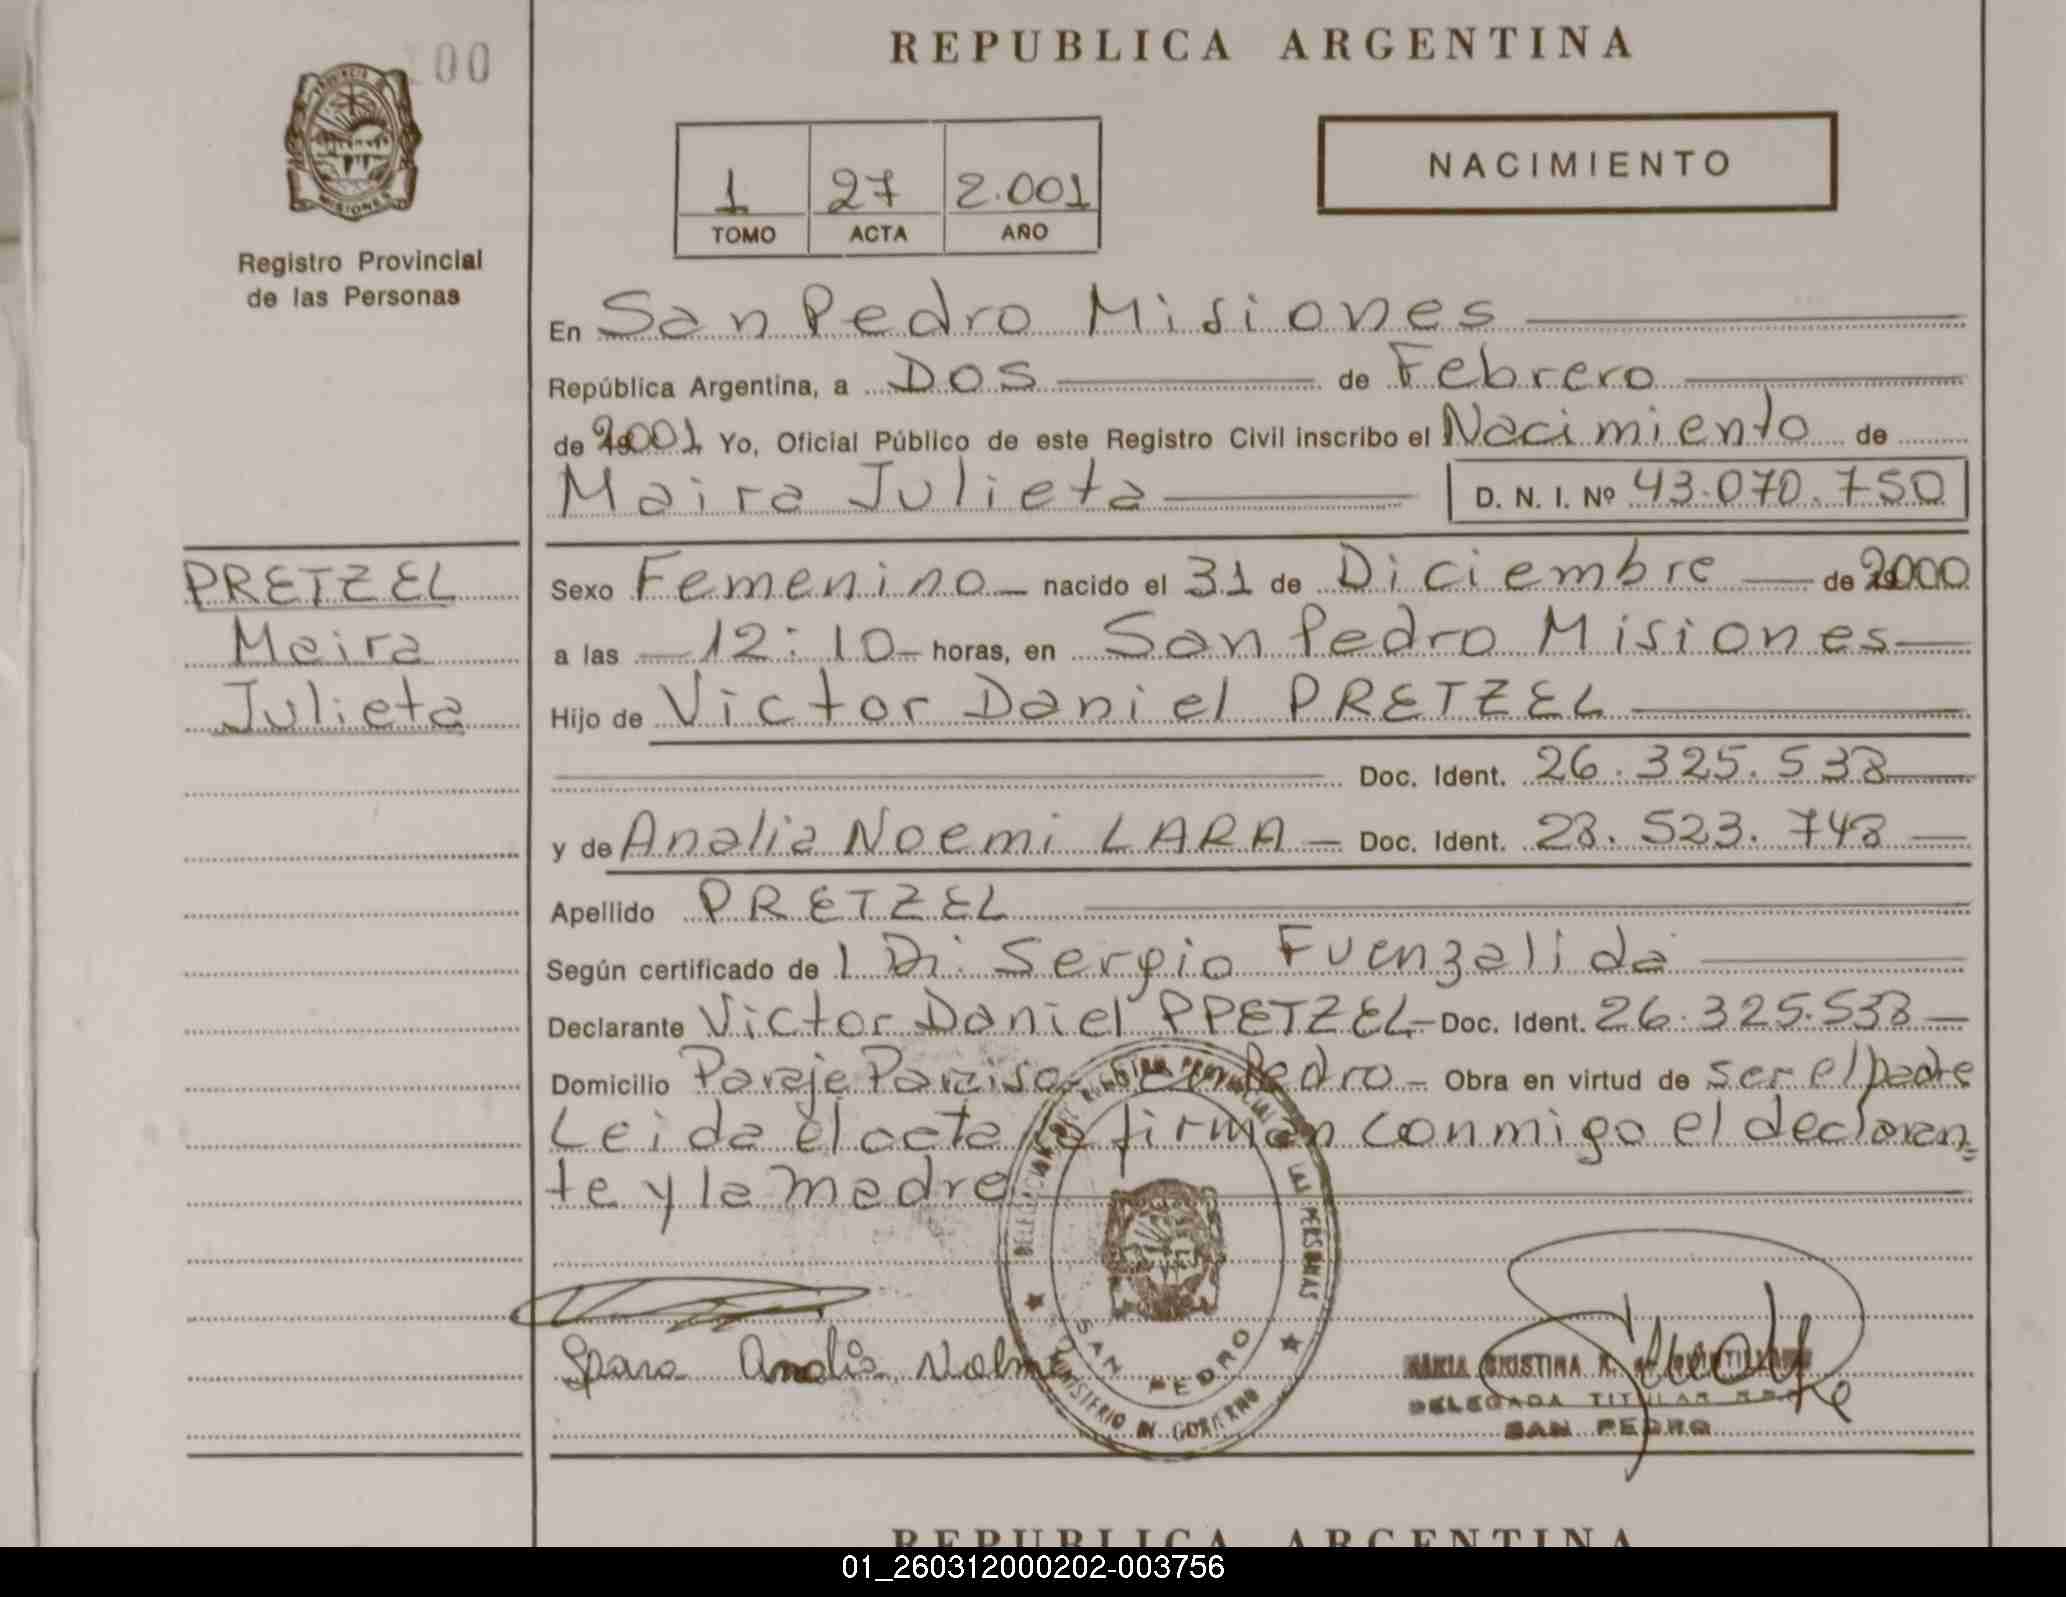 00
REPUBLICA ARGENTINA
1 27 2.001
TOMO ACTA AÑO
NACIMIENTO
MISIONES
Registro Provincial
de las Personas
En San Pedro Misiones
República Argentina, a Dos de Febrero
de 2001 Yo, Oficial Público de este Registro Civil inscribo el Nacimiento de
Maira Julieta D. N. I. Nº 43.070.750
PRETZEL
Maira
Julieta
Sexo Femenino nacido el 31 de Diciembre de 2000
a las 12:10 horas, en San Pedro Misiones
Hijo de Victor Daniel PRETZEL
Doc. Ident. 26.325.538
y de Analia Noemi LARA Doc. Ident. 28.523.748
Apellido PRETZEL
Según certificado de Sergio Fuenzalida
Declarante Victor Daniel PPETZEL Doc. Ident. 26.325.538
Domicilio Paraje Paraiso Pedro Obra en virtud de ser el padre
Leida el acta firman conmigo el declaran=
te y la madre
DELEGACION REGISTRO PROVINCIAL DE LAS PERSONAS
SAN PEDRO
MINISTERIO DE GOBIERNO
MARIA CRISTINA
DELEGADA TITULAR
SAN PEDRO
REPUBLICA ARGENTINA
01_260312000202-003756